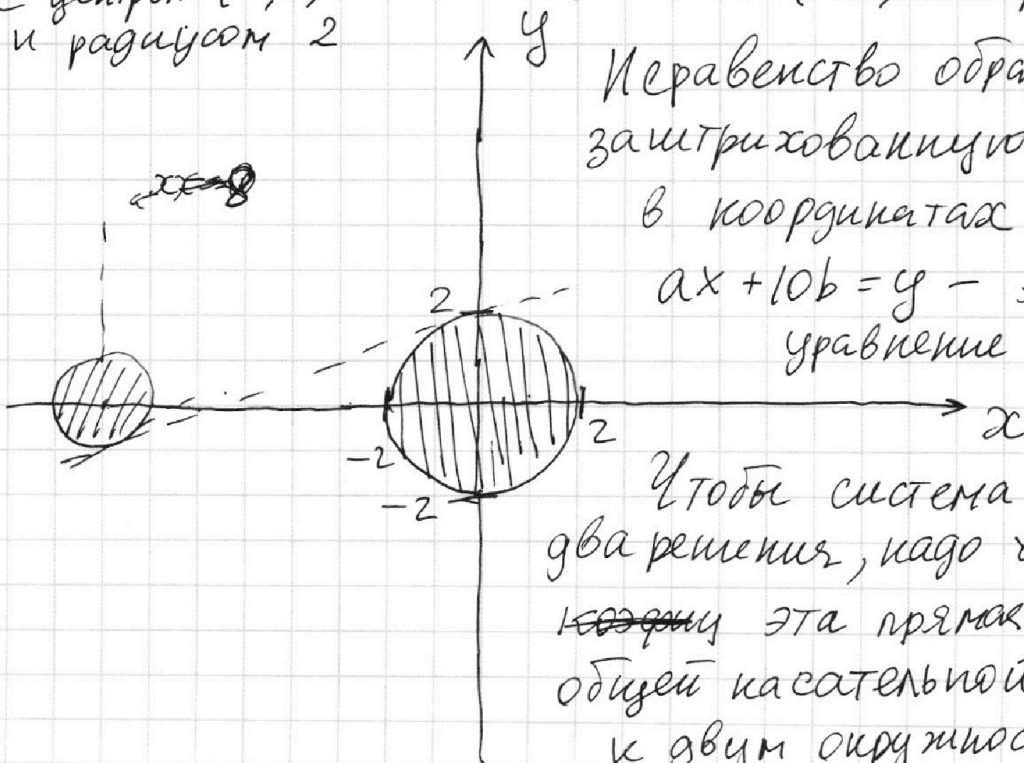 и радиусом 2
y
Неравенство обра
заштрихованную
в координатах
ax + 10b = y −
уравнение
2
x
−2
2
−2
Чтобы система
два решения, надо
эта прямая
общей касательной
к двум окружнос